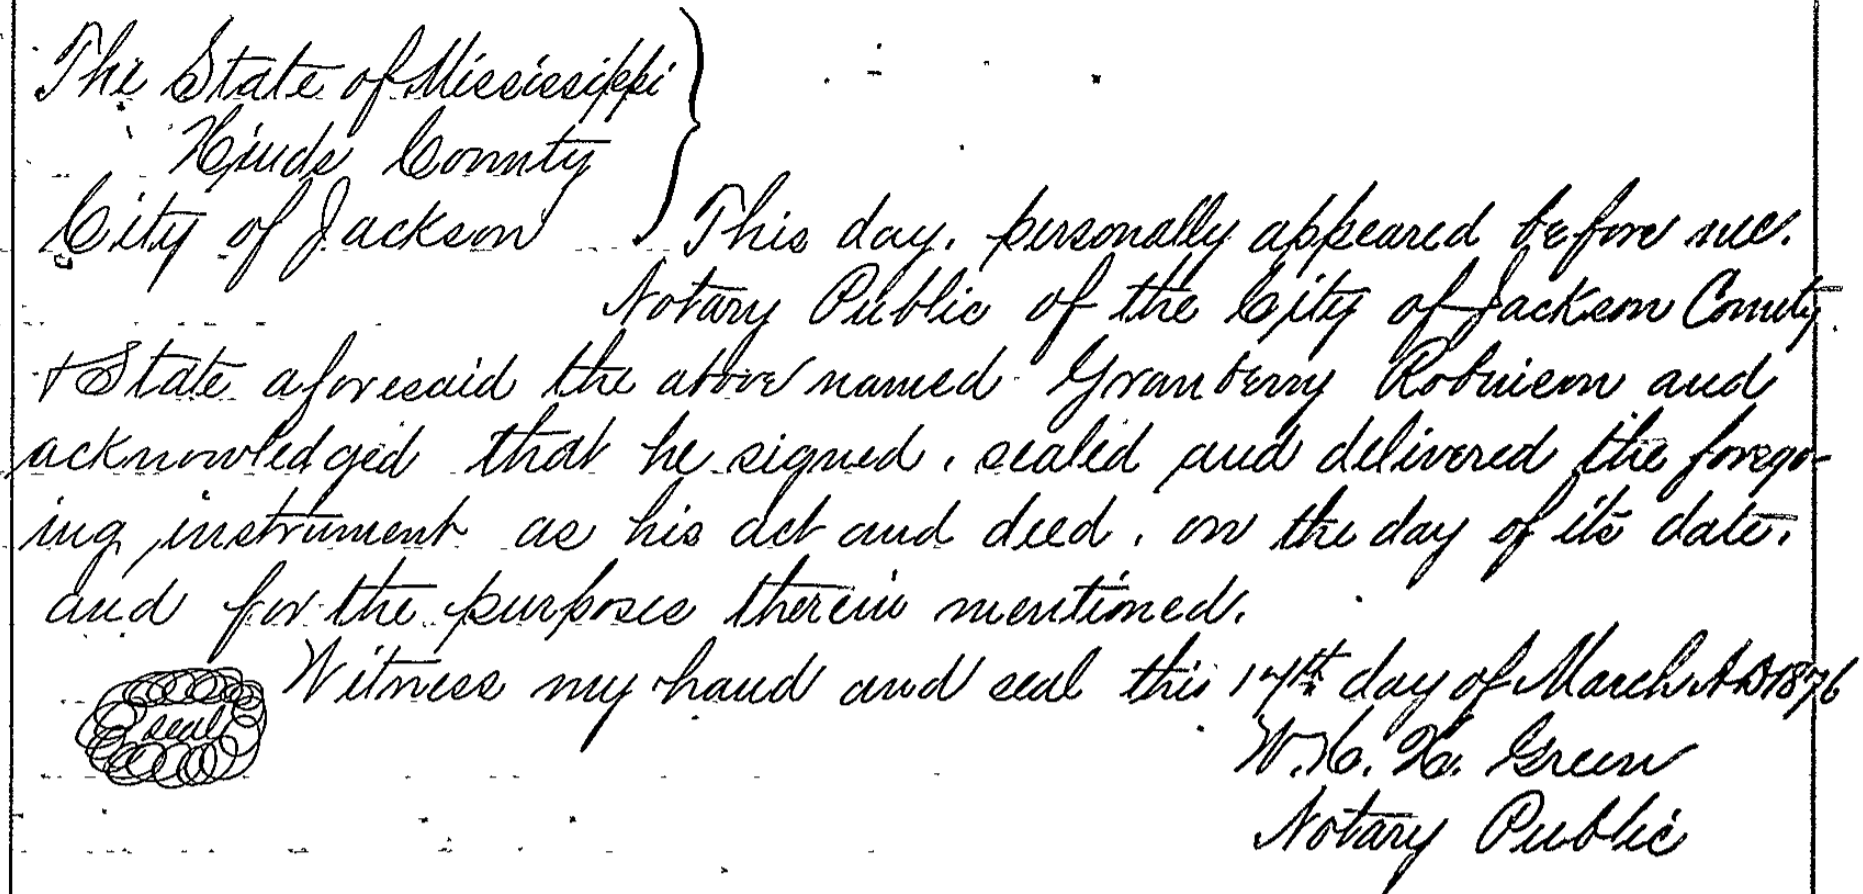 The State of Mississippi
Hinds County
City of Jackson This day, personally appeared before me.
Notary Public of the City of Jackson County
& State aforesaid the above named Granberry Robinson and
acknowledged that he signed, sealed and delivered the forego-
ing instrument as his act and deed, on the day of its date,
and for the purposes therein mentioned.
Witness my hand and seal this 17th day of March A.D. 1876
seal
W. H. H. Green
Notary Public